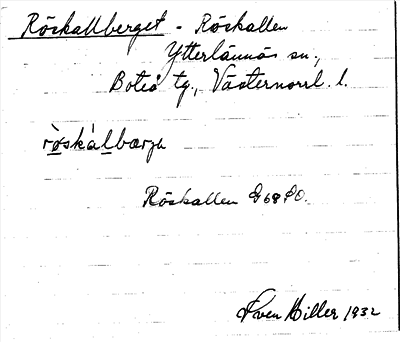 Röskallberget - Röskallen
Ytterlännäs sn.,
Boteå tg., Västernorrl. l.
rö̀skálbærjə
Röskallen G 68 SO.
Sven Hiller 1932